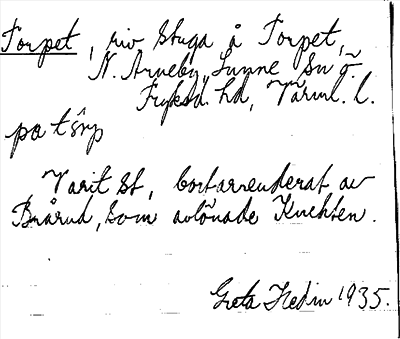 Torpet, riv stuga å Torpet,
N. Arneby, Sunne sn ö.
Fryksd. hd, Värml. l.
på tôrp
Varit st, bortarrenderat av
Brårud, som avlönade Knekten.
Greta Hedin 1935.